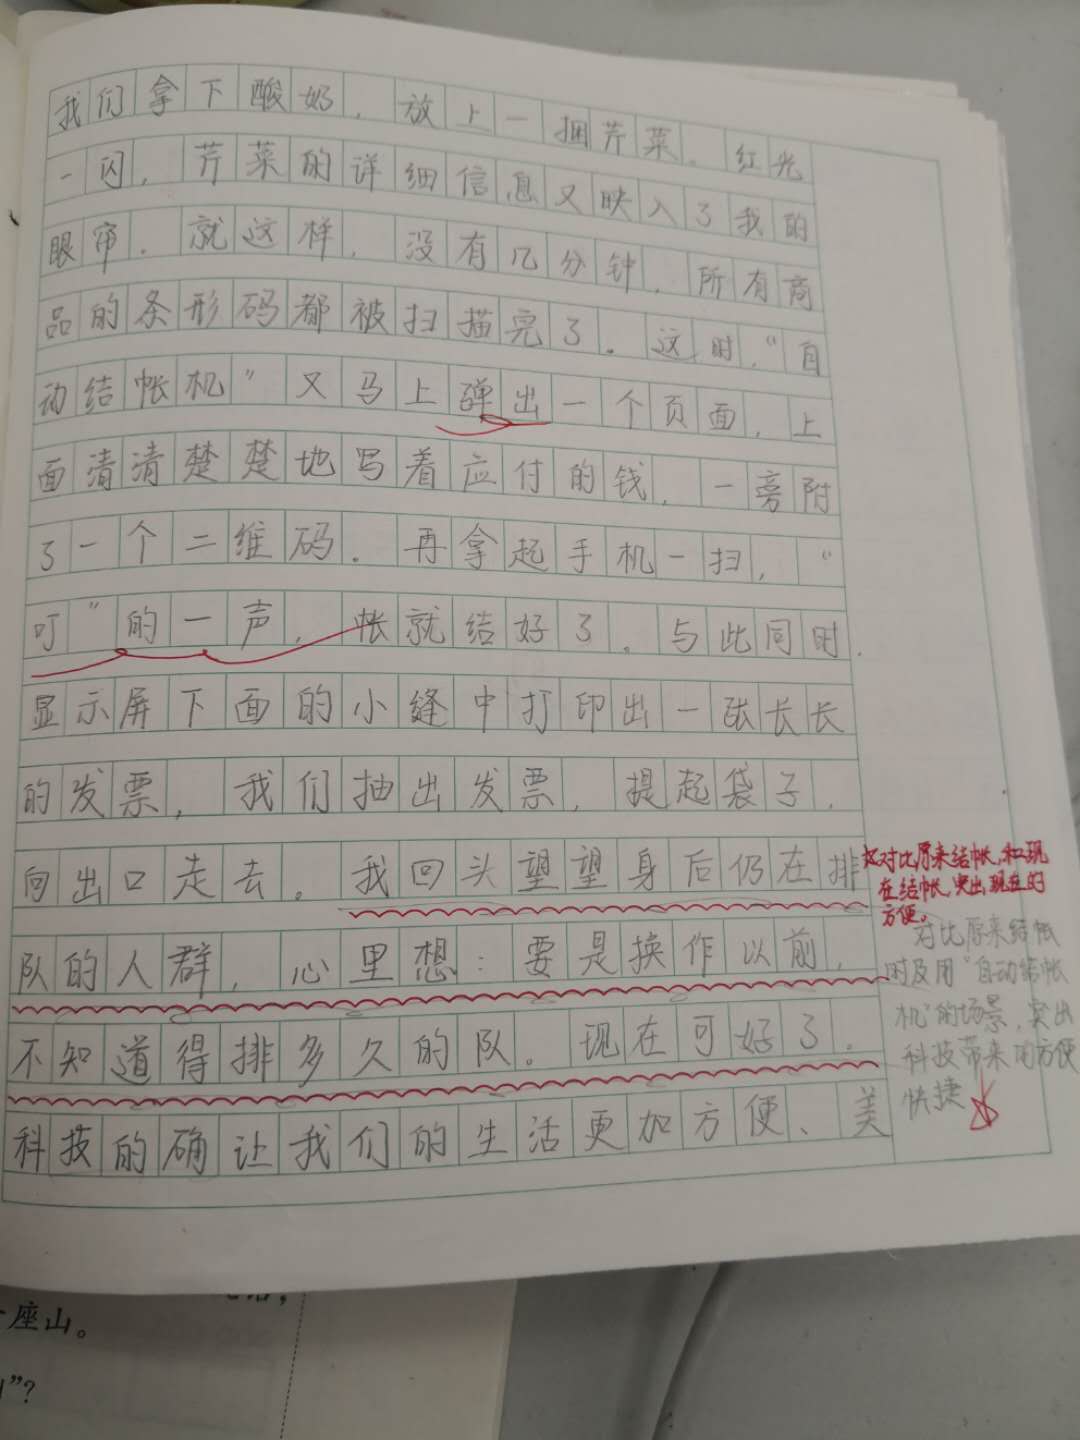 我们拿下酸奶，放上一捆芹菜。红光
一闪，芹菜的详细信息又映入了我的
眼帘。就这样，没有几分钟，所有商
品的条形码都被扫描完了。这时，“自
动结帐机”又马上弹出一个页面，上
面清清楚楚地写着应付的钱，一旁附
了一个二维码。再拿起手机一扫，“
叮”的一声，帐就结好了。与此同时，
显示屏下面的小缝中打印出一张长长
的发票，我们抽出发票，提起袋子，
向出口走去。我回头望望身后仍在排
队的人群，心里想：要是换作以前，
不知道得排多久的队。现在可好了。
科技的确让我们的生活更加方便、美
对比原来结帐，和现
在结帐，突出现在的
方便。
对比原来结帐
时及用“自动结帐
机”的场景，突出
科技带来的方便
快捷
座山。
”？